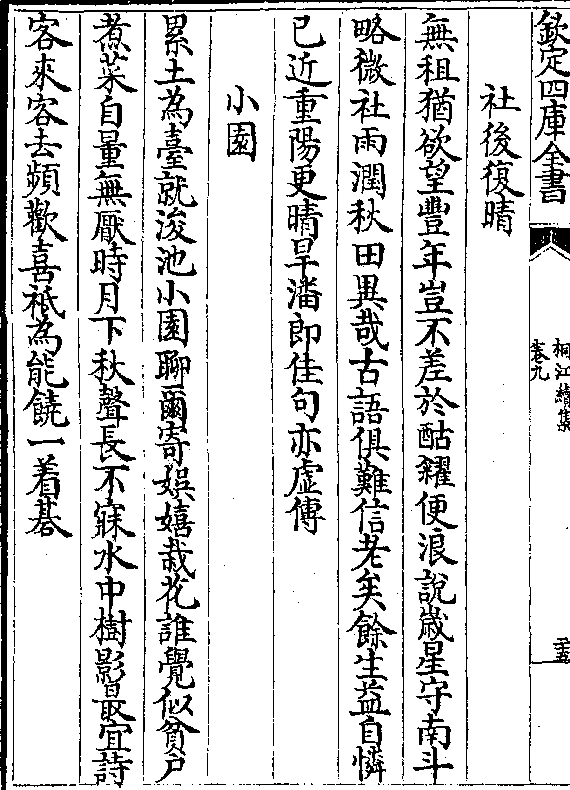 欽定四庫全書
桐江續集
卷九
二十五
社後復晴
無租猶欲望豐年豈不差於酤糴便浪說歲星守南斗
略微社雨潤秋田異哉古語俱難信老矣餘生益自憐
已近重陽更晴旱潘郎佳句亦虛傳
小園
累土為臺就浚池小園聊爾寄娯嬉栽花誰覺似貧戶
煮菜自量無厭時月下秋聲長不寐水中樹影最宜詩
客來客去頻歡喜祗為能饒一着棊